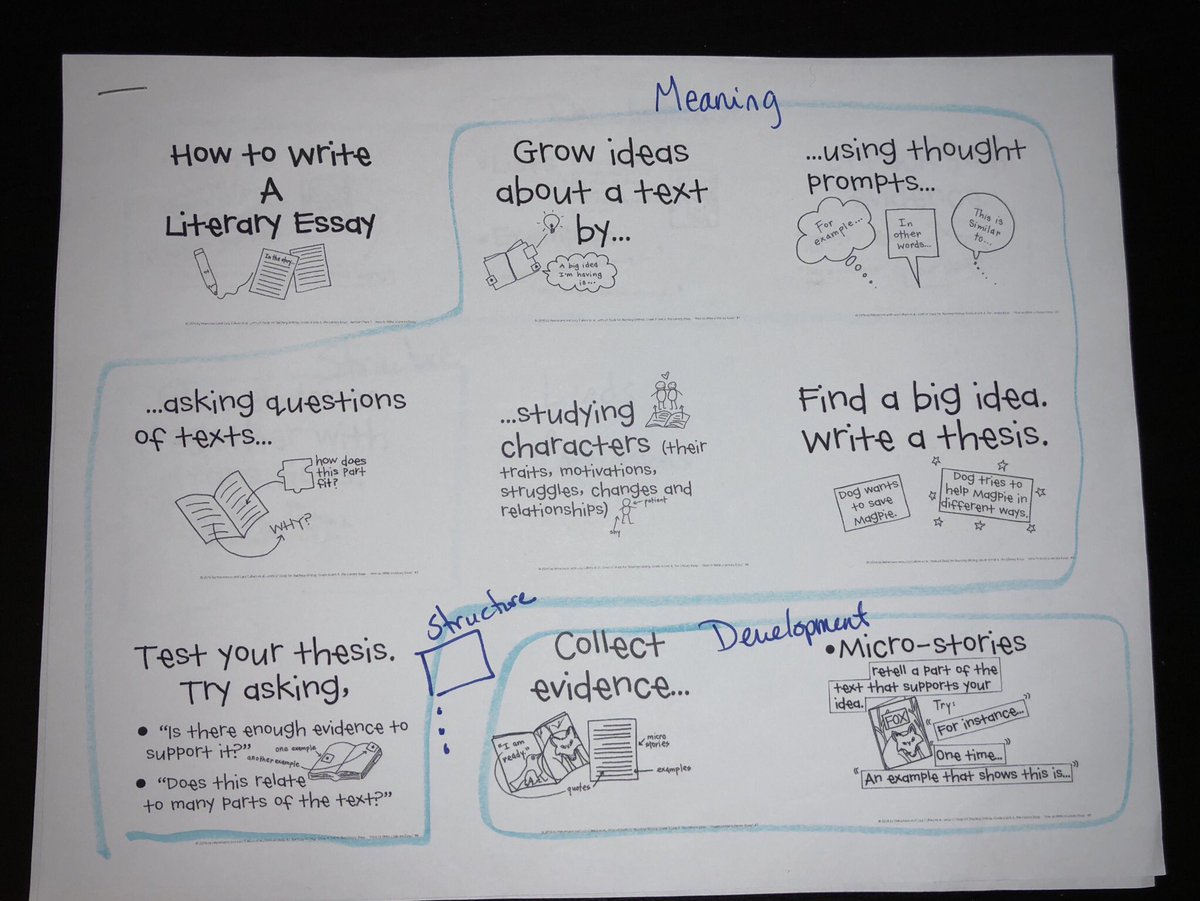 Meaning
How to write
A
Literary Essay
In the story...
Grow ideas
about a text
by...
A big idea
I'm having
is...
...using thought
prompts...
For
example...
In
other
words...
This is
similar
to...
...asking questions
of texts...
how does
this part
fit?
WHY?
...studying
characters (their
traits, motivations,
struggles, changes and
relationships)
patient
shy
Find a big idea.
Write a thesis.
Dog wants
to save
Magpie.
Dog tries to
help Magpie in
different ways.
Structure
Test your thesis.
Try asking,
• "Is there enough evidence to
support it?"
one example
another example
• "Does this relate
to many parts of the text?"
Development
Collect
evidence...
"I am
ready."
micro
stories
examples
quotes
•Micro-stories
retell a part of the
text that supports your
idea.
FOX
Try:
"For instance..."
"One time..."
"An example that shows this is..."